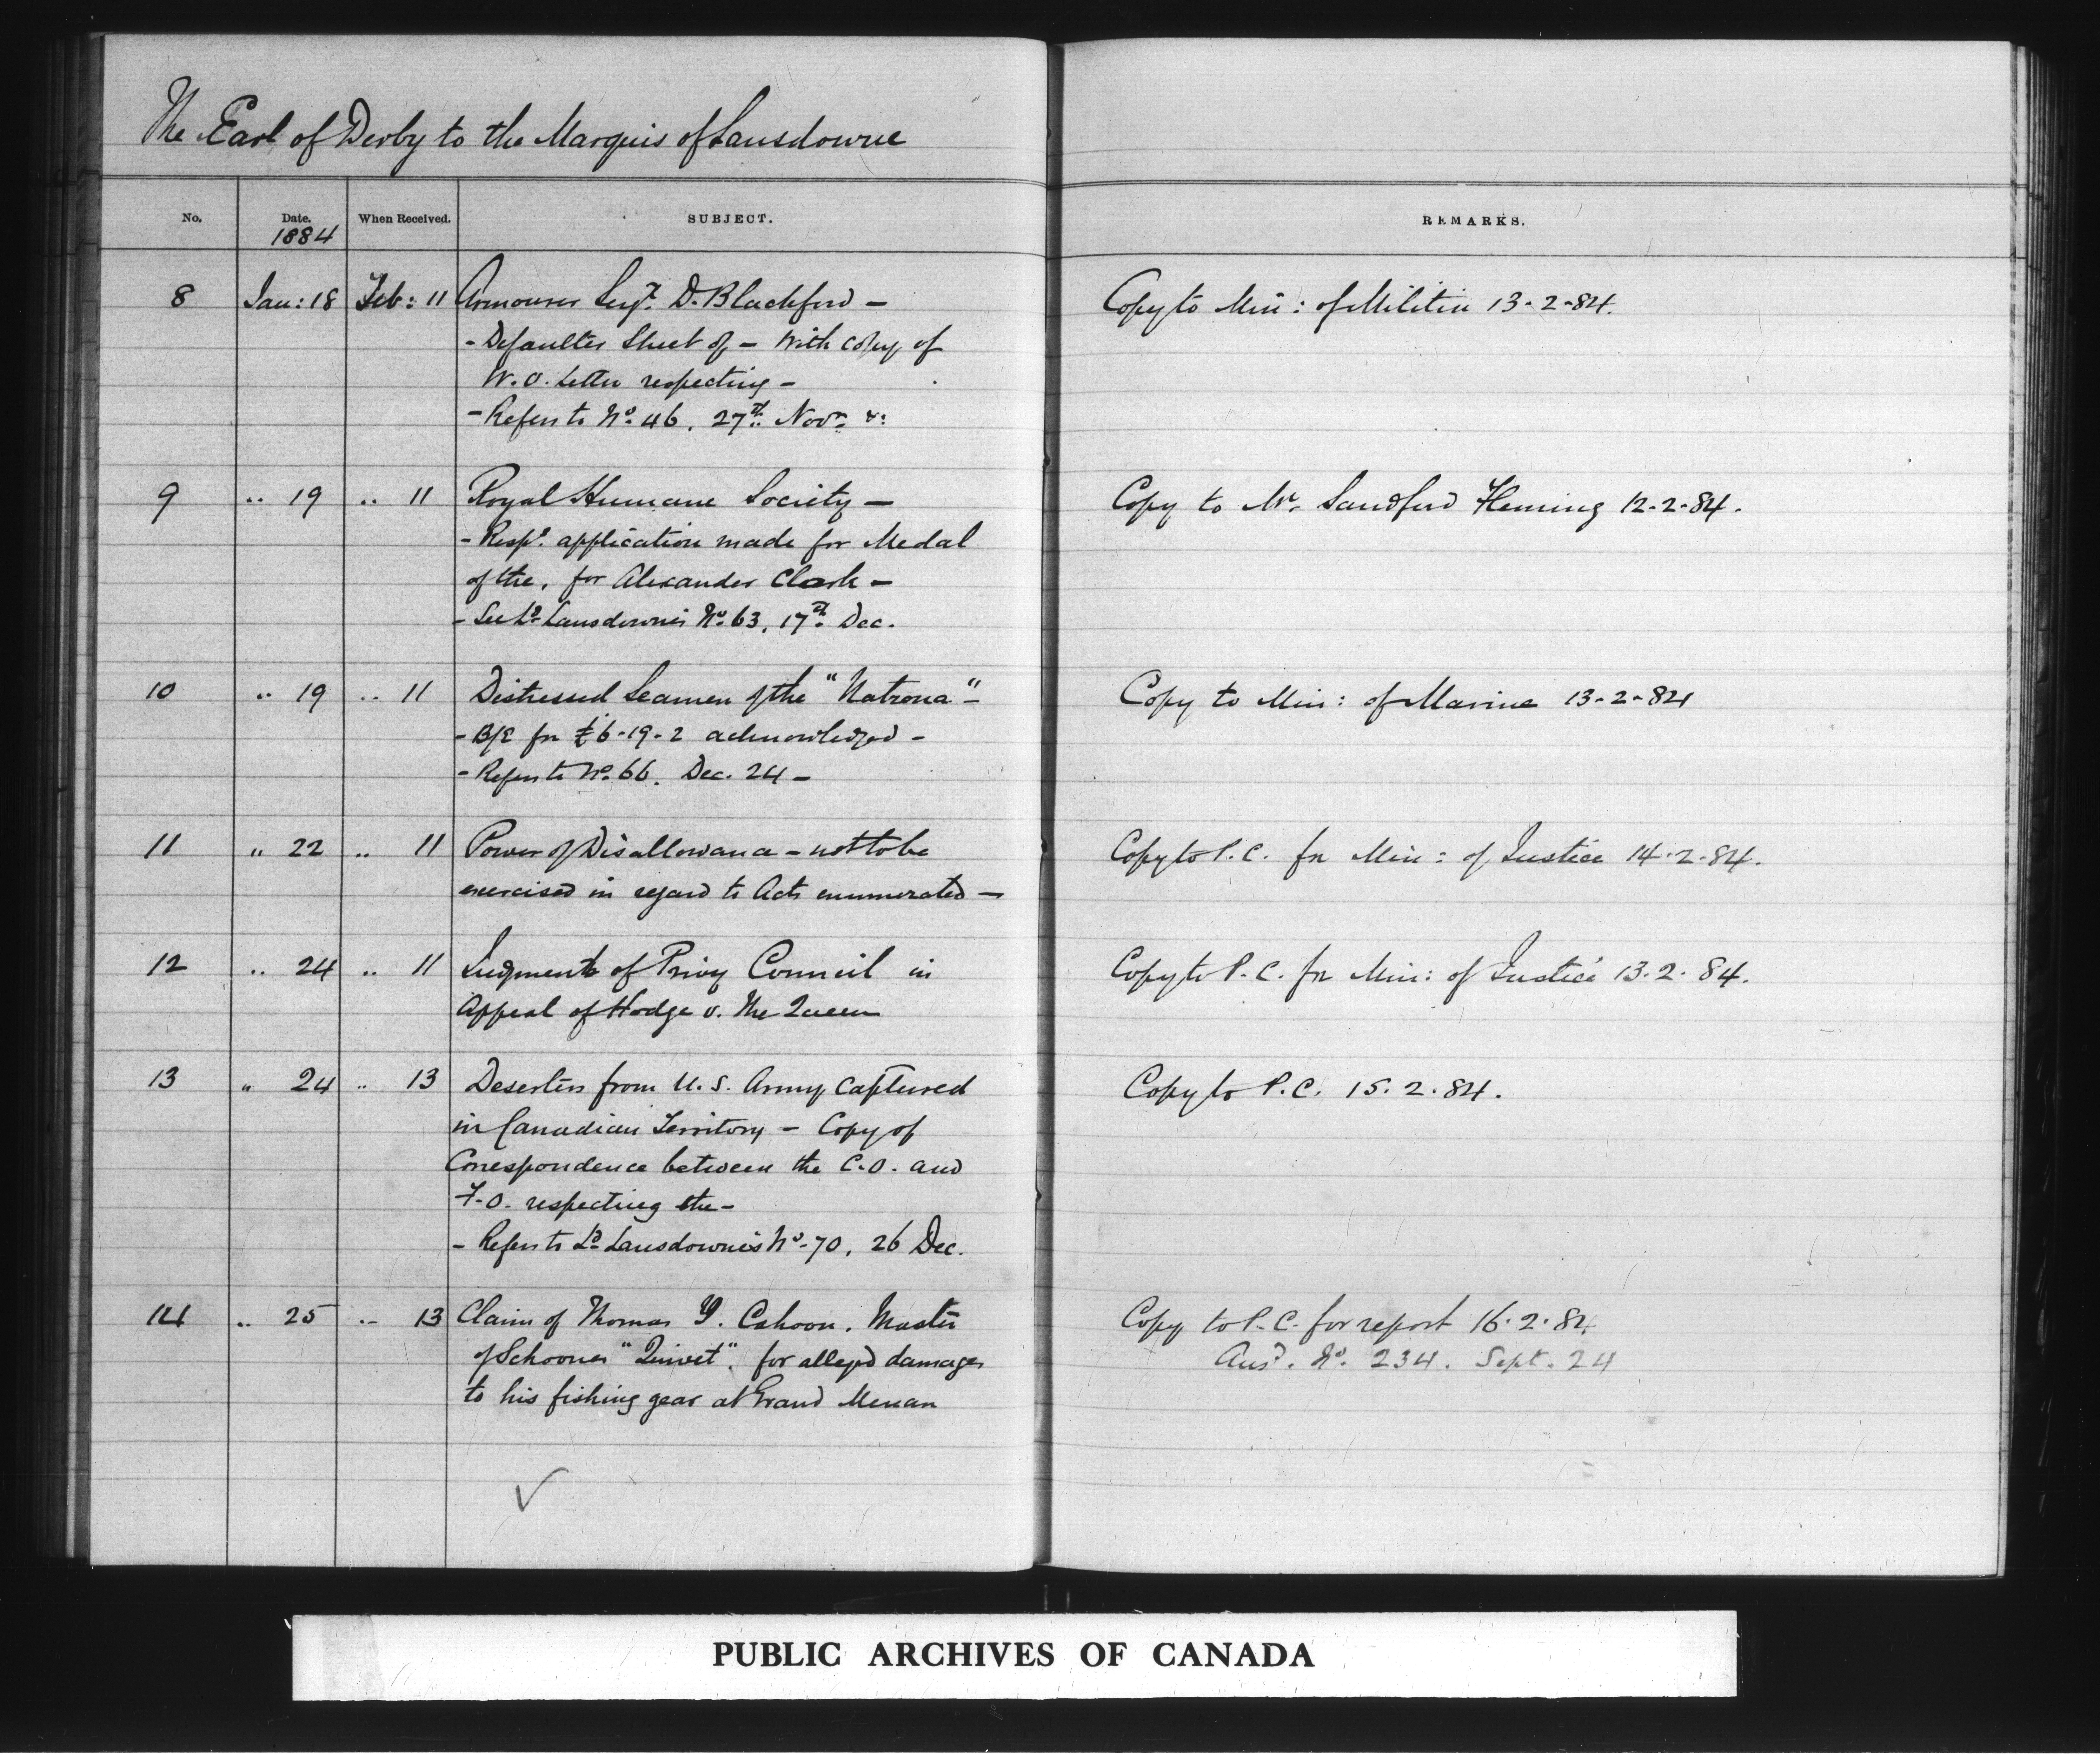 The Earl of Derby to the Marquis of Lansdowne
No. Date. When Received. SUBJECT. REMARKS.
1884
8 Jan: 18 Feb: 11 Armourer Sergt. D. Blackford — Copy to Min: of Militia 13-2-84.
- Defaulter Sheet of - With copy of
W.O. Letter respecting -
- Refers to No. 46, 27th Novr. &:
9 " 19 " 11 Royal Humane Society — Copy to Mr. Sandford Fleming 12-2-84.
- Respg. application made for Medal
of the, for Alexander Clark -
- See Ld. Lansdowne's No. 63, 17th Dec.
10 " 19 " 11 Distressed Seamen of the "Natrona" - Copy to Min: of Marine 13-2-84
- B/E for £6-19-2 acknowledged -
- Refers to No. 66, Dec. 24 -
11 " 22 " 11 Power of Disallowance - not to be Copy to P.C. for Min: of Justice 14-2-84.
exercised in regard to Acts enumerated —
12 " 24 " 11 Judgment of Privy Council in Copy to P.C. for Min: of Justice 13.2.84.
Appeal of Hodge v. The Queen
13 " 24 " 13 Deserters from U.S. Army captured Copy to P.C. 15.2.84.
in Canadian Territory - Copy of
Correspondence between the C.O. and
F.O. respecting the -
- Refers to Ld. Lansdowne's No. 70, 26 Dec.
14 " 25 " 13 Claim of Thomas Y. Cahoon, Master Copy to P.C. for report 16.2.84
of Schooner "Quivet", for alleged damages Ansd. No. 234. Sept. 24
to his fishing gear at Grand Menan
PUBLIC ARCHIVES OF CANADA